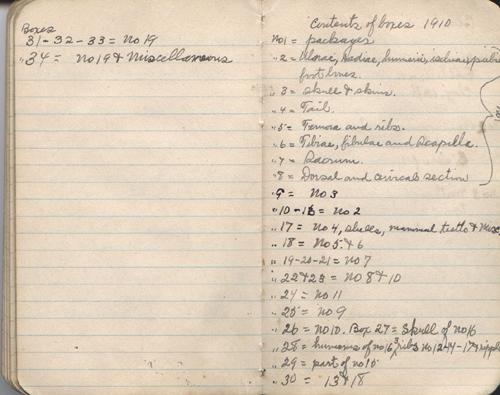 Boxes
31-32-33 = No 19
" 34 = No 19 & Miscellaneous
Contents of boxes 1910
No 1 = packages
" 2 = Ulnae, Radiae, humerii, ischiae
foot bones.
" 3 = Skull & skins.
" 4 = Tail.
" 5 = Femora and ribs.
" 6 = Tibiae, fibulae and Scapilla.
" 7 = Sacrum.
" 8 = Dorsal and cervical section
9 = No 3
" 10-16 = No 2
" 17 = No 4, skulls, mammal teeth &
" 18 = No 5 & 6
" 19-20-21 = No 7
" 22 & 23 = No 8 & 10
" 24 = No 11
" 25 = No 9
" 26 = No 10. Box 27 = Skull of No 16
" 28 = humerus of No 16, ribs No 12-14-17
" 29 = part of No 15
" 30 = 13 & 18